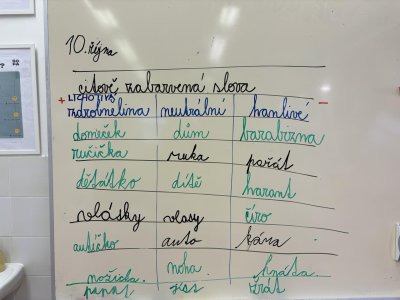 10. října
citově zabarvená slova
+ LICHOTIVÁ -
zdrobnělina neutrální hanlivé
domeček dům barabizna
ručička ruka pařát
děťátko dítě harant
vlásky vlasy číro
autíčko auto kára
nožička noha hnáta
papat jíst žrát